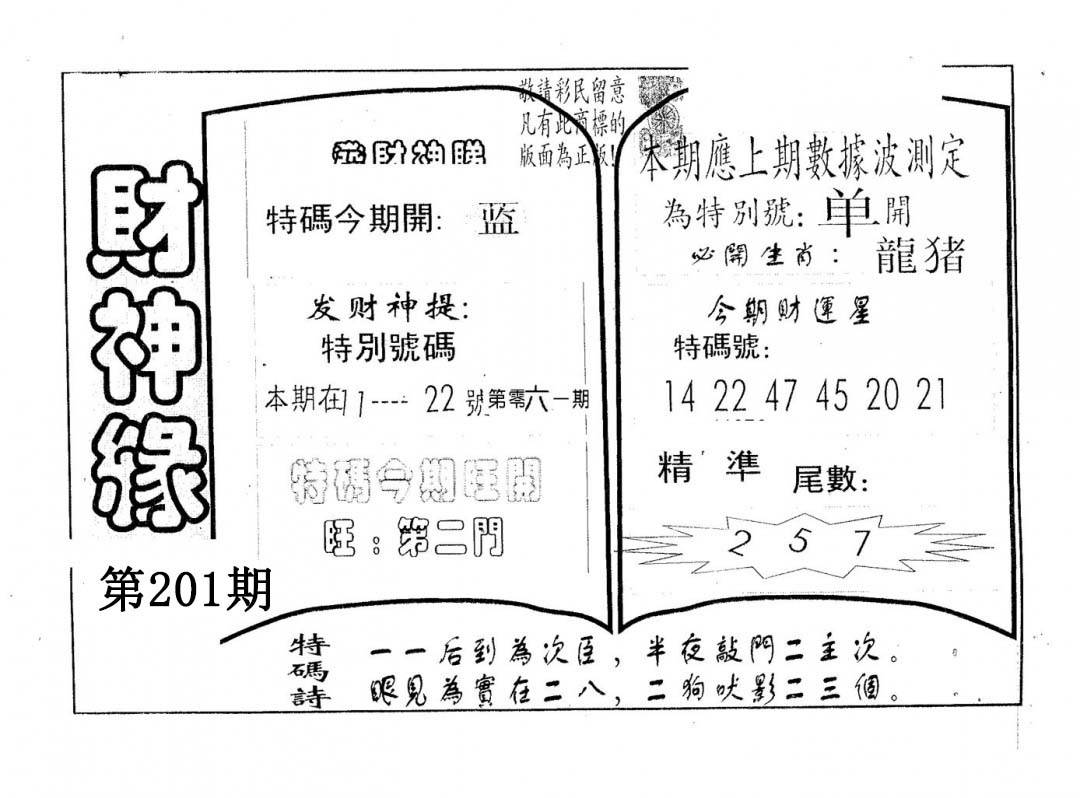 財神緣
第201期
敬請彩民留意
凡有此商標的
版面為正版!
財神
特碼今期開: 蓝
发财神提:
特別號碼
本期在11----22號第零六一期
特碼今期旺開
旺:第二門
本期應上期數據波測定
為特別號:单開
必開生肖:龍猪
今期財運星
特碼號:
14 22 47 45 20 21
精準 尾數:
2 5 7
特碼詩
一一后到為次臣,半夜敲門二主次。
眼見為實在二八,二狗吠影二三個。